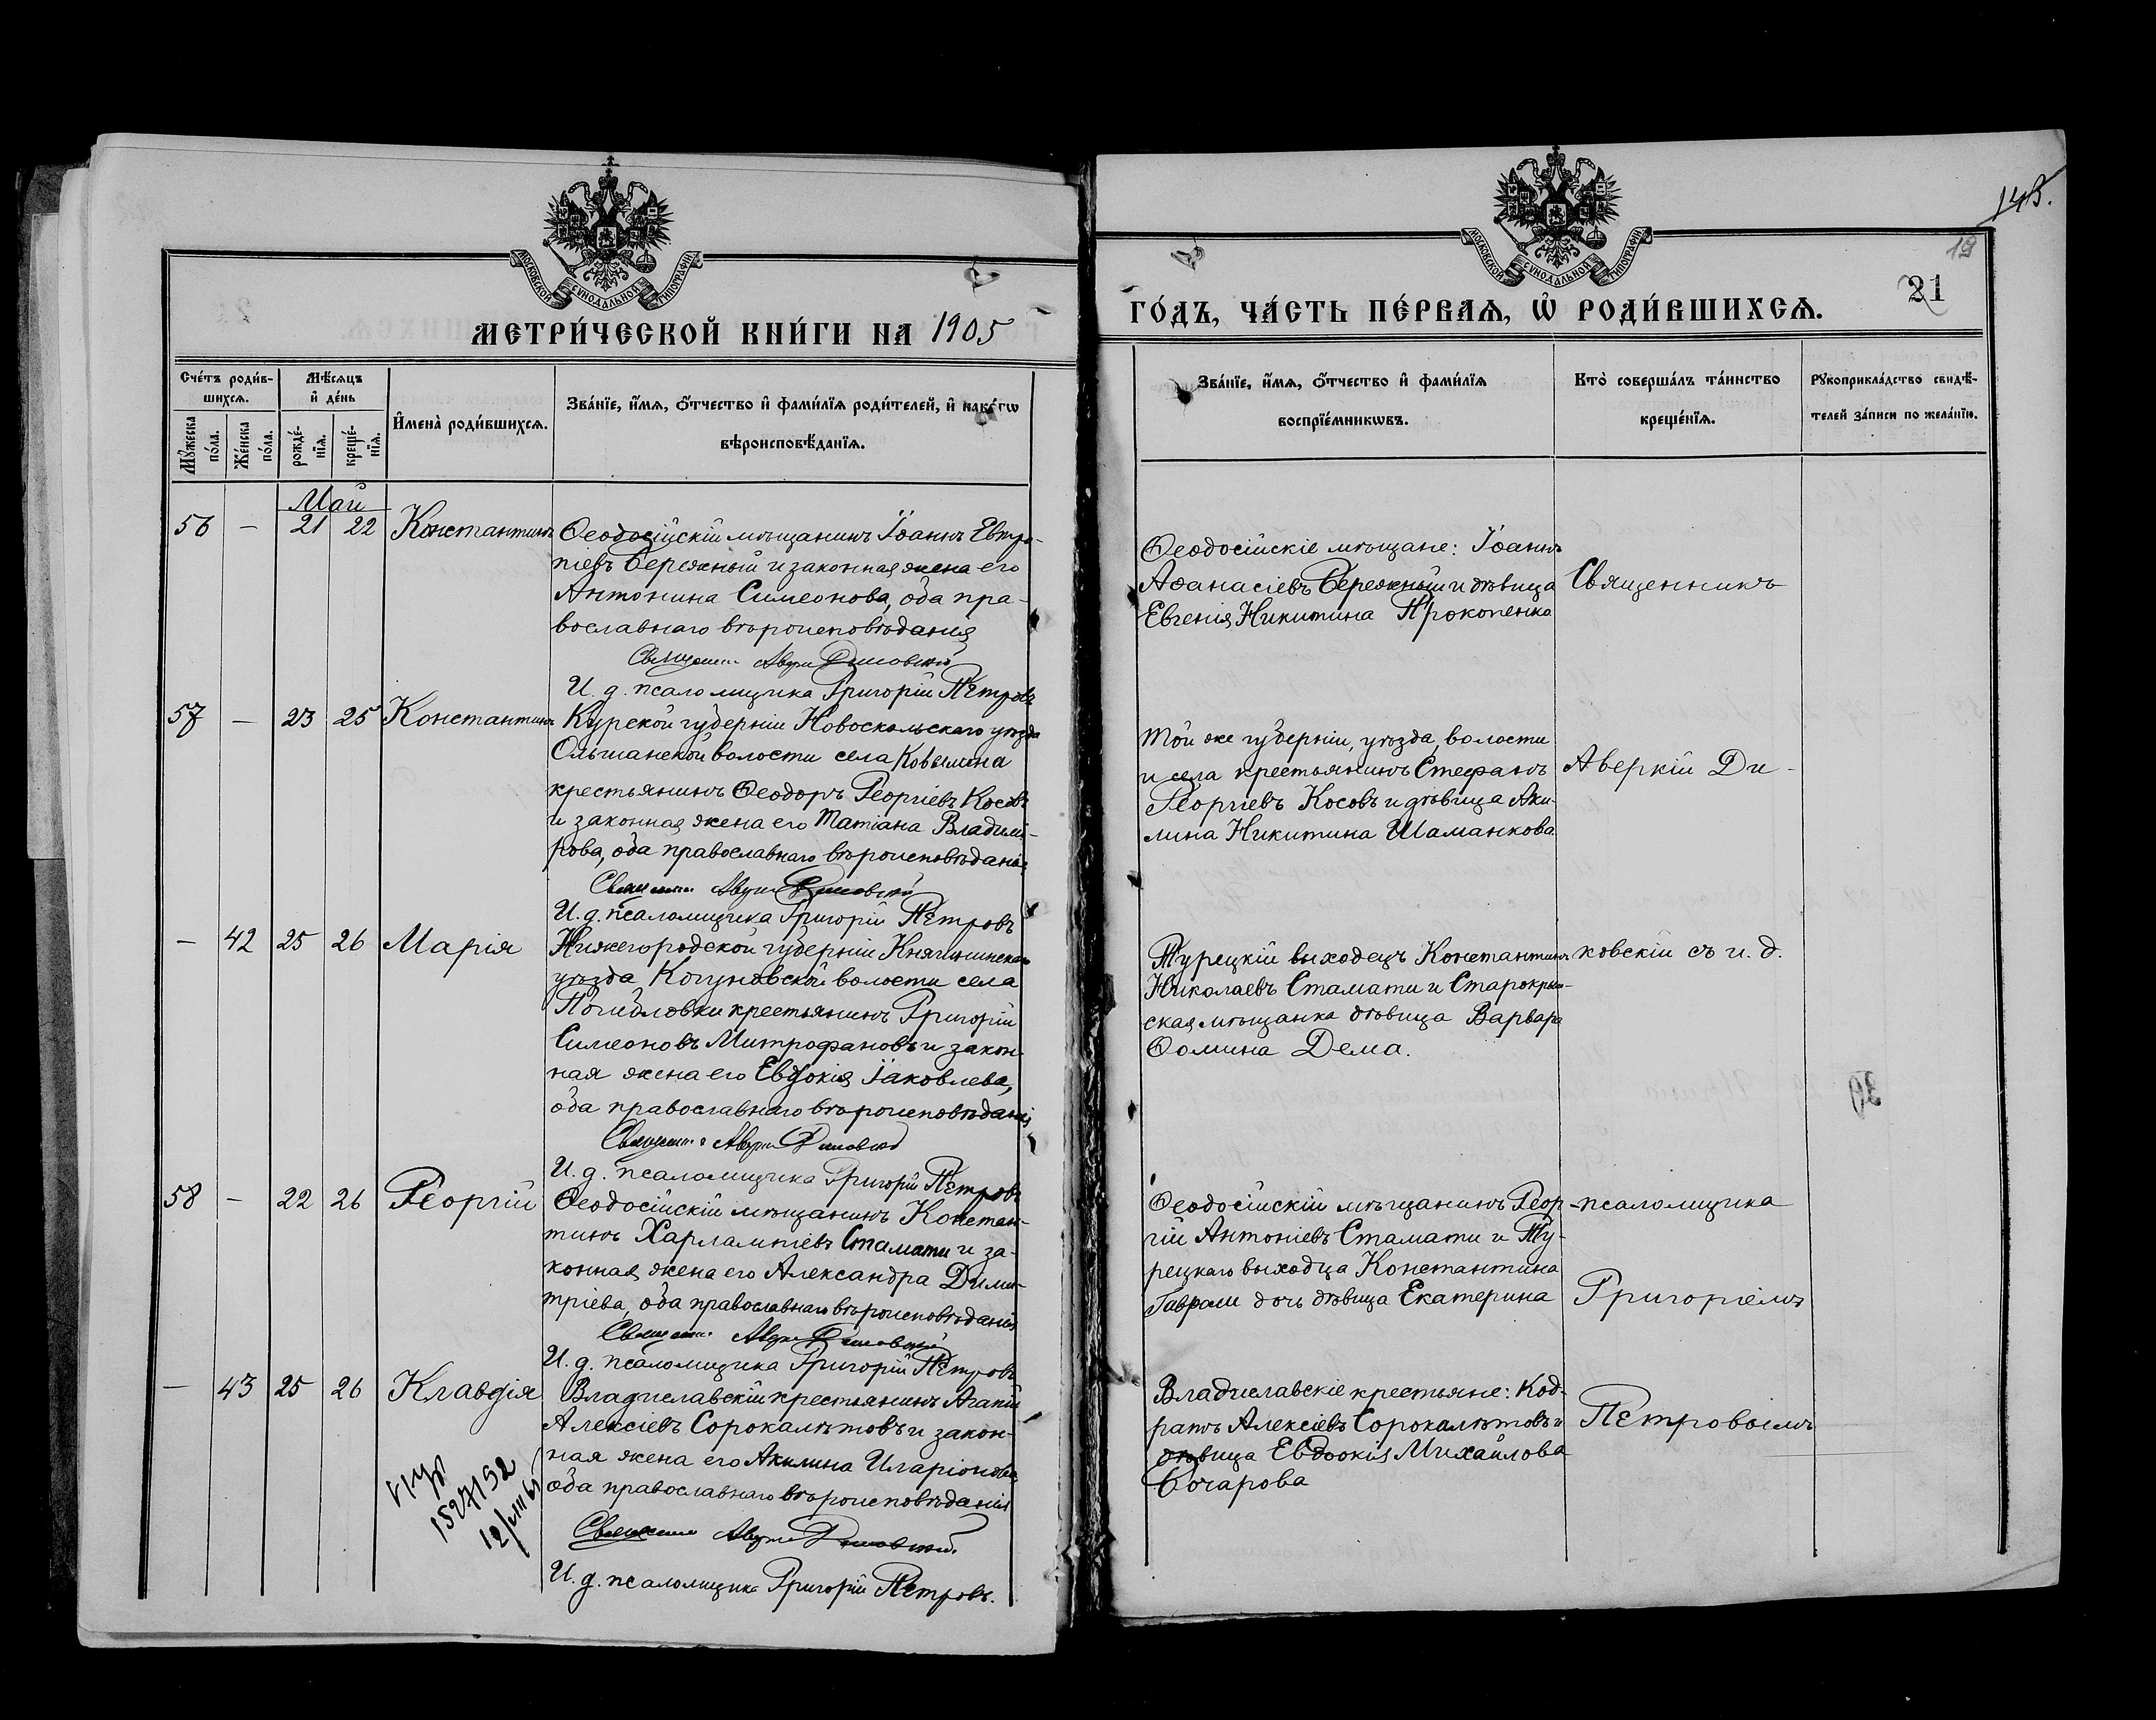 МОСКОВСКОЙ СѴНОДАЛЬНОЙ ТИПОГРАФІИ
МЕТРИ́ЧЕСКОЙ КНИ́ГИ НА 1905
Сче́тъ роди́в-
шихсѧ.
Мꙋ́жеска по́ла.
Же́нска по́ла.
Мѣ́сѧцъ
и҆ де́нь
рожде́-
нїѧ.
креще́-
нїѧ.
И҆мена̀ роди́вшихсѧ.
Зва́нїе, и҆́мѧ, ѻ҆́тчество и҆ фами́лїѧ роди́телей, и҆ како́гѡ
вѣроисповѣ́данїѧ.
Май
56 — 21 22 Константинъ
Ѳеодосійскій мѣщанинъ Іоаннъ Евтро-
піевъ Бережный и законная жена его
Антонина Симеонова, оба пра-
вославнаго вѣроисповѣданія
И. д. псаломщика Григорій Петровъ
57 — 23 25 Константинъ
Курской губерніи Новоскольскаго уѣзда
Ольшанской волости села
крестьянинъ Ѳеодоръ Георгіевъ Косовъ
и законная жена его Татіана Владимі-
рова, оба православнаго вѣроисповѣданія
И. д. псаломщика Григорій Петровъ
— 42 25 26 Марія
Нижегородской губерніи Княгининскаго
уѣзда волости села
крестьянинъ Григорій
Симеоновъ Митрофановъ и закон-
ная жена его Евдокія Іаковлева,
оба православнаго вѣроисповѣданія
И. д. псаломщика Григорій Петровъ
58 — 22 26 Георгій
Ѳеодосійскій мѣщанинъ Констан-
тинъ Харлампіевъ Стамати и за-
конная жена его Александра Дими-
тріева, оба православнаго вѣроисповѣданія
И. д. псаломщика Григорій Петровъ
— 43 25 26 Клавдія
Владиславскій крестьянинъ Агапій
Алексіевъ Сорокалѣтовъ и закон-
ная жена его Акилина Иларіонова,
оба православнаго вѣроисповѣданія
И. д. псаломщика Григорій Петровъ.
МОСКОВСКОЙ СѴНОДАЛЬНОЙ ТИПОГРАФІИ
19
21
ГО́ДЪ, ЧА́СТЬ ПЕ́РВАѦ, Ѡ҆ РОДИ́ВШИХСѦ.
Зва́нїе, и҆́мѧ, ѻ҆́тчество и҆ фами́лїѧ
воспрїе́мникѡвъ.
Кто̀ соверша́лъ та́инство
креще́нїѧ.
Рꙋкоприкла́дство свидѣ́-
телей за́писи по жела́нїю.
Ѳеодосійскіе мѣщане: Іоаннъ
Аѳанасіевъ Бережный и дѣвица
Евгенія Никитина Прокопенко
Священникъ
Той же губерніи, уѣзда, волости
и села крестьянинъ Стефанъ
Георгіевъ Косовъ и дѣвица Аки-
лина Никитина Шаманкова
Аверкій Ди-
Турецкій выходецъ Константинъ
Николаевъ Стамати и Старокрым-
ская мѣщанка дѣвица Варвара
Ѳомина Дема.
ковскій съ и. д.
Ѳеодосійскій мѣщанинъ Геор-
гій Антоніевъ Стамати и Ту-
рецкаго выходца Константина
Гаврали дочь дѣвица Екатерина
псаломщика
Григоріемъ
Владиславскіе крестьяне: Код-
ратъ Алексіевъ Сорокалѣтовъ и
дѣвица Евдокія Михайлова
Бочарова
Петровымъ